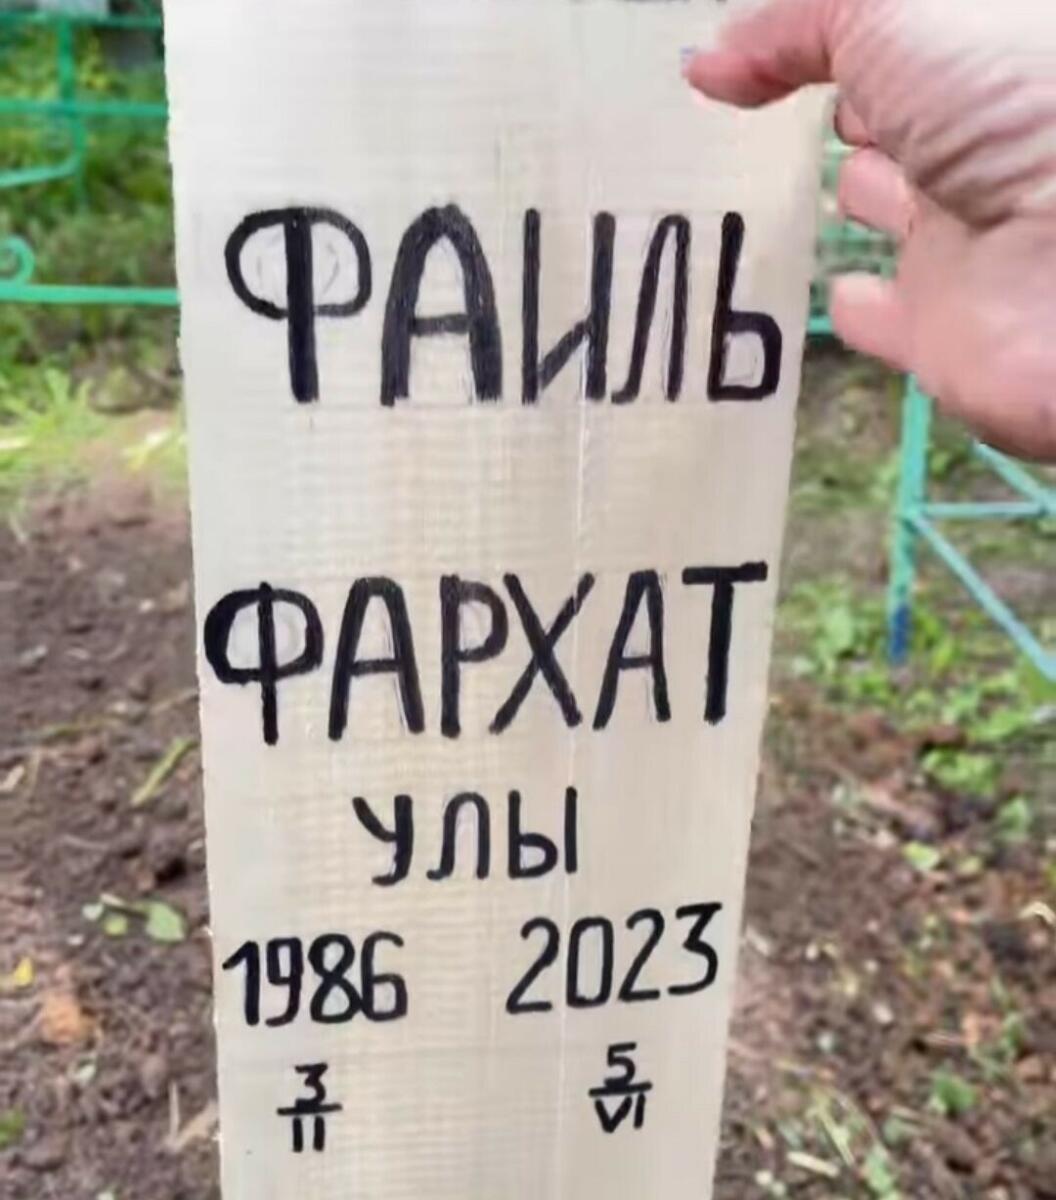 ФАИЛЬ
ФАРХАТ
УЛЫ
1986 2023
3/II 5/VI